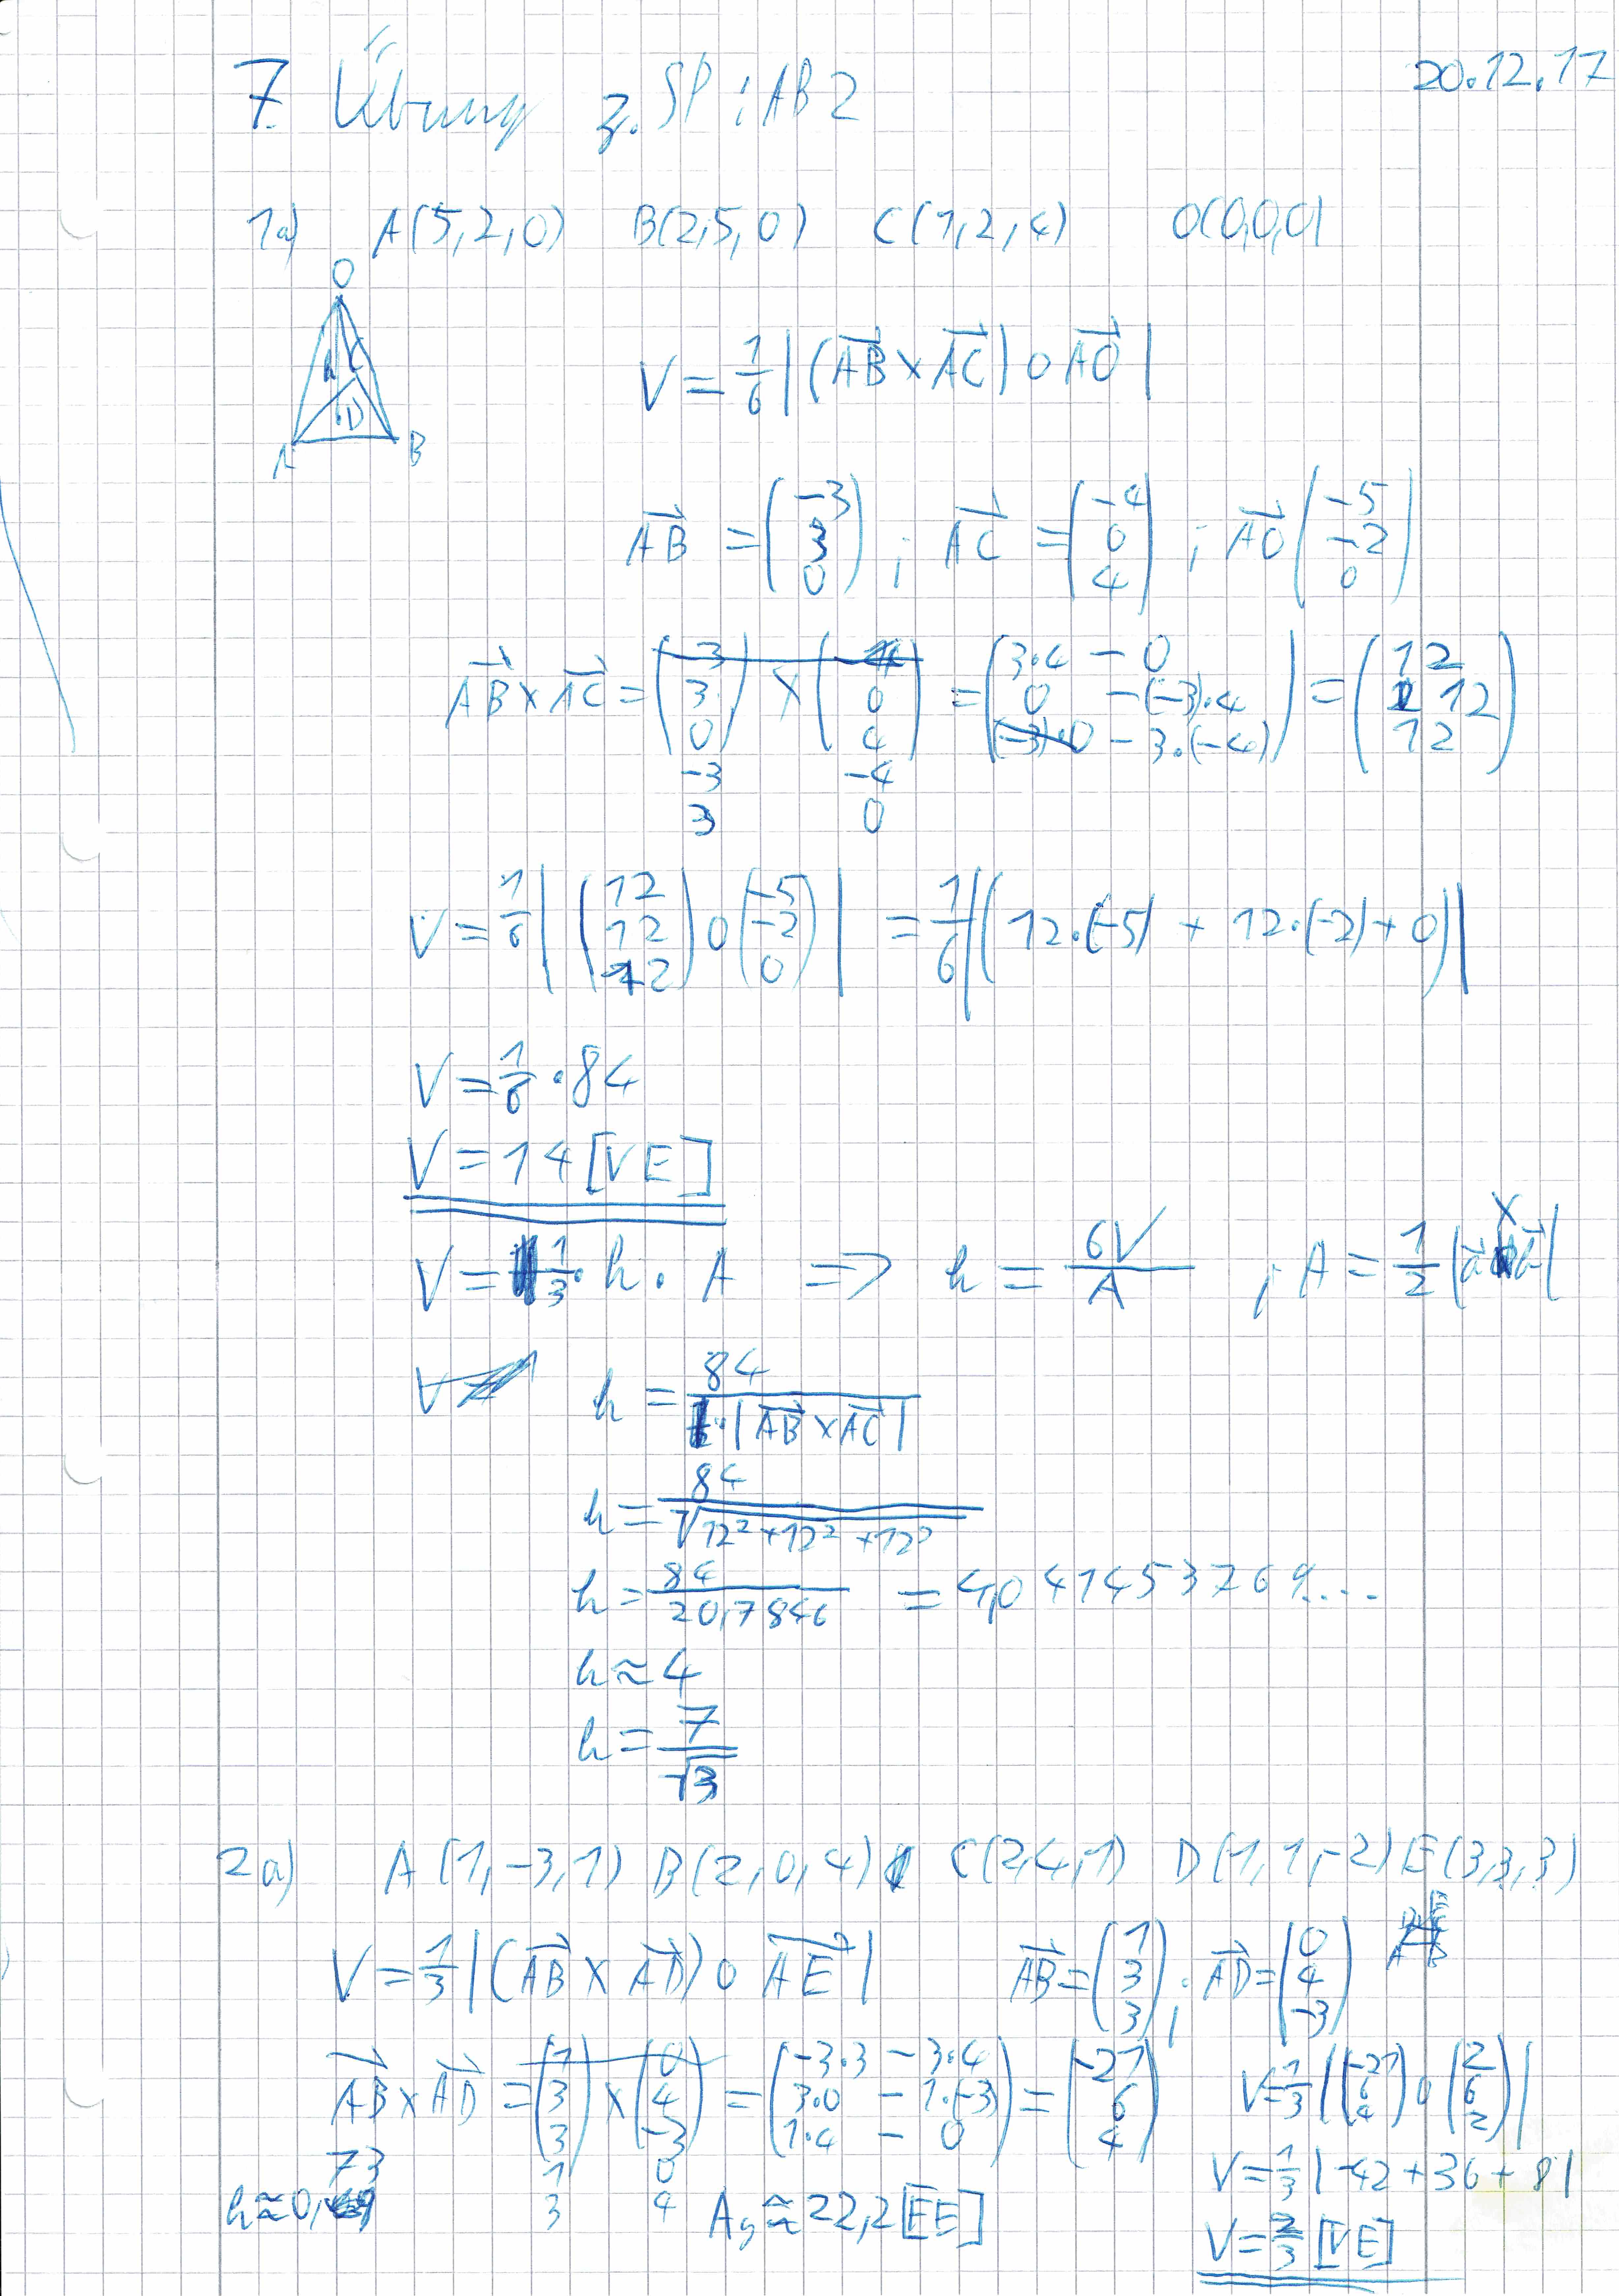 20.12.17
7. Übung z. SP : AB 2
1a) A(5,2,0) B(2,5,0) C(1,2,4) O(0,0,0)
O
h C
D
A B
V = 1/6 |(AB × AC) o AO|
AB = (-3 3 0) ; AC = (-4 0 4) ; AO (-5 -2 0)
AB × AC = (-3 3 0) × (-4 0 4) = (3·4 - 0, 0 - (-3)·4, (-3)·0 - 3·(-4)) = (12 12 12)
-3 -4
3 0
V = 1/6 | (12 12 12) o (-5 -2 0) | = 1/6 |(12·(-5) + 12·(-2) + 0)|
V = 1/6 · 84
V = 14 [VE]
V = 1/3 · h · A => h = 6V/A ; A = 1/2 |a × a|
h = 84 / |AB × AC|
h = 84 / √(12² + 12² + 12²)
h = 84 / 20,7846 = 4,041453769...
h ≈ 4
h = 7/√3
2a) A(1,-3,1) B(2,0,4) C(2,4,1) D(1,1,-2) E(3,3,3)
V = 1/3 |(AB × AD) o AE| AB = (1 3 3) ; AD = (0 4 -3)
AB × AD = (1 3 3) × (0 4 -3) = (-3·3 - 3·4, 3·0 - 1·(-3), 1·4 - 0) = (-21 6 4) V = 1/3 |(-21 6 4) o (2 6 2)|
73 1 0 V = 1/3 |-42 + 36 + 8|
h ≈ 0, 3 4 Ag ≈ 22,2 [FE]
V = 2/3 [VE]